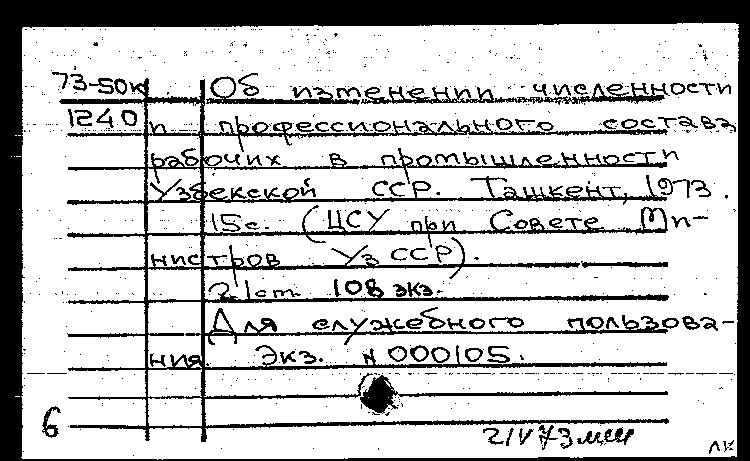 73-50к Об изменении численности
1240 и профессионального состава
рабочих в промышленности
Узбекской ССР. Ташкент, 1973.
15с. (ЦСУ при Совете Ми-
нистров Уз ССР).
21см. 108 экз.
Для служебного пользова-
ния. Экз. N 000105.
6